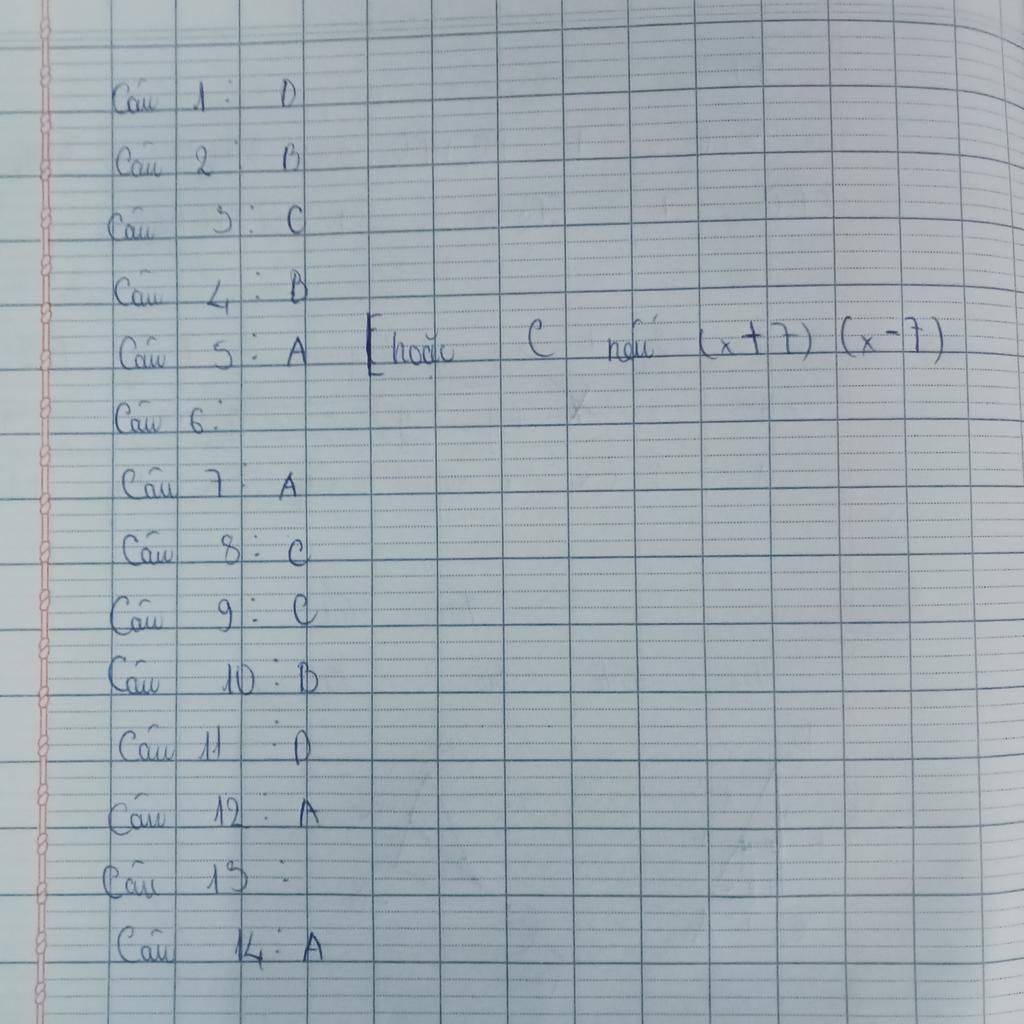 Câu 1: D
Câu 2 B
Câu 3: C
Câu 4: B
Câu 5: A [hoặc C nếu (x+7) (x-7)
Câu 6:
Câu 7 A
Câu 8: C
Câu 9: C
Câu 10: D
Câu 11 : D
Câu 12: A
Câu 13:
Câu 14: A